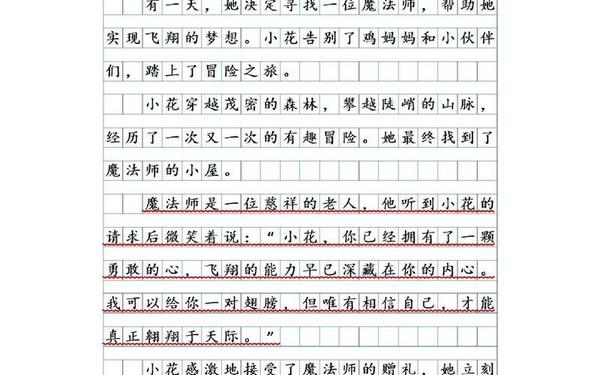 有一天，她决定寻找一位魔法师，帮助她
实现飞翔的梦想。小花告别了鸡妈妈和小伙伴
们，踏上了冒险之旅。
小花穿越茂密的森林，攀越陡峭的山脉，
经历了一次又一次的有趣冒险。她最终找到了
魔法师的小屋。
魔法师是一位慈祥的老人，他听到小花的
请求后微笑着说：“小花，你已经拥有了一颗
勇敢的心，飞翔的能力早已深藏在你的内心。
我可以给你一对翅膀，但唯有相信自己，才能
真正翱翔于天际。”
小花感激地接受了魔法师的赠礼，她立刻